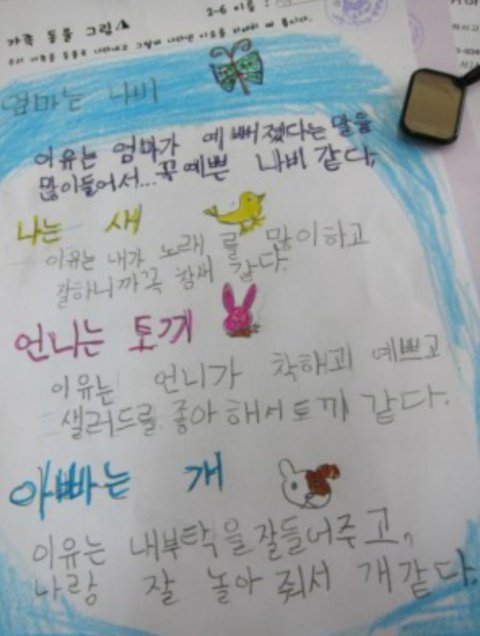 가족 동물 그림
2-6 이름:
우리 가족을 동물로 나타내고 그렇게 나타낸 이유를 자세히 써 봅시다.
엄마는 나비
이유는 엄마가 예뻐졌다는 말을
많이들어서... 꼭 예쁜 나비 같다.
나는 새
이유는 내가 노래를 많이하고
잘하니까꼭 참새 같다.
언니는 토끼
이유는 언니가 착하고 예쁘고
샐러드를 좋아해서토끼 같다.
아빠는 개
이유는 내부탁을잘들어주고,
나랑 잘 놀아 줘서 개같다.